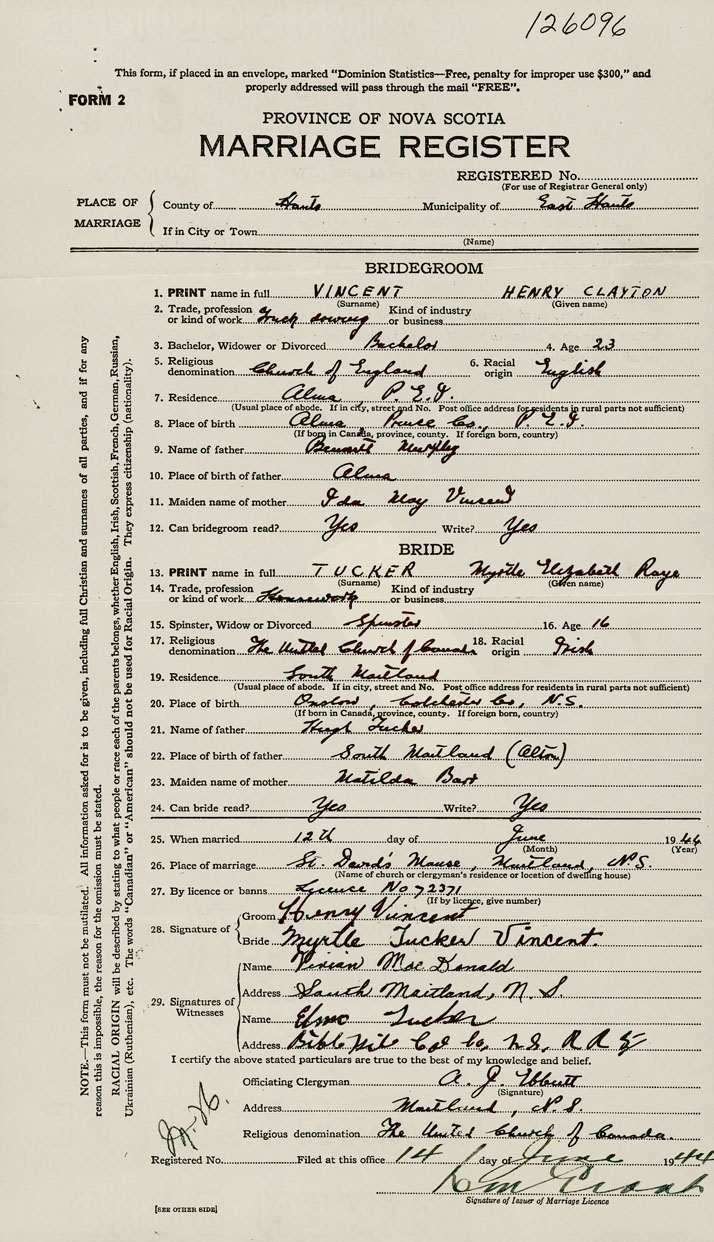 126096
This form, if placed in an envelope, marked "Dominion Statistics—Free, penalty for improper use $300," and
properly addressed will pass through the mail "FREE".
FORM 2
PROVINCE OF NOVA SCOTIA
MARRIAGE REGISTER
REGISTERED No.
(For use of Registrar General only)
PLACE OF MARRIAGE
County of Hants Municipality of East Hants
If in City or Town
(Name)
BRIDEGROOM
1. PRINT name in full VINCENT HENRY CLAYTON
(Surname) (Given name)
2. Trade, profession or kind of work Truck driving Kind of industry or business
3. Bachelor, Widower or Divorced Bachelor 4. Age 23
5. Religious denomination Church of England 6. Racial origin English
7. Residence Alma, P.E.I.
(Usual place of abode. If in city, street and No. Post office address for residents in rural parts not sufficient)
8. Place of birth Alma, Prince Co., P.E.I.
(If born in Canada, province, county. If foreign born, country)
9. Name of father Bennett Murphy
10. Place of birth of father Alma
11. Maiden name of mother Ida May Vincent
12. Can bridegroom read? Yes Write? Yes
BRIDE
13. PRINT name in full TUCKER Myrtle Elizabeth Raye
(Surname) (Given name)
14. Trade, profession or kind of work Housework Kind of industry or business
15. Spinster, Widow or Divorced Spinster 16. Age 16
17. Religious denomination The United Church of Canada 18. Racial origin Irish
19. Residence South Maitland
(Usual place of abode. If in city, street and No. Post office address for residents in rural parts not sufficient)
20. Place of birth Onslow, Colchester Co., N.S.
(If born in Canada, province, county. If foreign born, country)
21. Name of father Hugh Tucker
22. Place of birth of father South Maitland (Alton)
23. Maiden name of mother Matilda Barr
24. Can bride read? Yes Write? Yes
25. When married 12th day of June 1944
(Month) (Year)
26. Place of marriage St. David's Manse, Maitland, N.S.
(Name of church or clergyman's residence or location of dwelling house)
27. By licence or banns Licence No 72371
(If by licence, give number)
28. Signature of
Groom Henry Vincent
Bride Myrtle Tucker Vincent.
29. Signatures of Witnesses
Name Vivian MacDonald
Address South Maitland, N.S.
Name Elmo Tucker
Address Bible Hill Col Co, N.S. R R
I certify the above stated particulars are true to the best of my knowledge and belief.
Officiating Clergyman A. J. Ebbutt
(Signature)
Address Maitland, N.S.
Religious denomination The United Church of Canada.
Registered No. Filed at this office 14 day of June 1944
Signature of Issuer of Marriage Licence
[SEE OTHER SIDE]
NOTE.—This form must not be mutilated. All information asked for is to be given, including full Christian and surnames of all parties, and if for any
reason this is impossible, the reason for the omission must be stated.
RACIAL ORIGIN will be described by stating to what people or race each of the parents belongs, whether English, Irish, Scottish, French, German, Russian,
Ukrainian (Ruthenian), etc. The words "Canadian" or "American" should not be used for Racial Origin. They express citizenship (nationality).